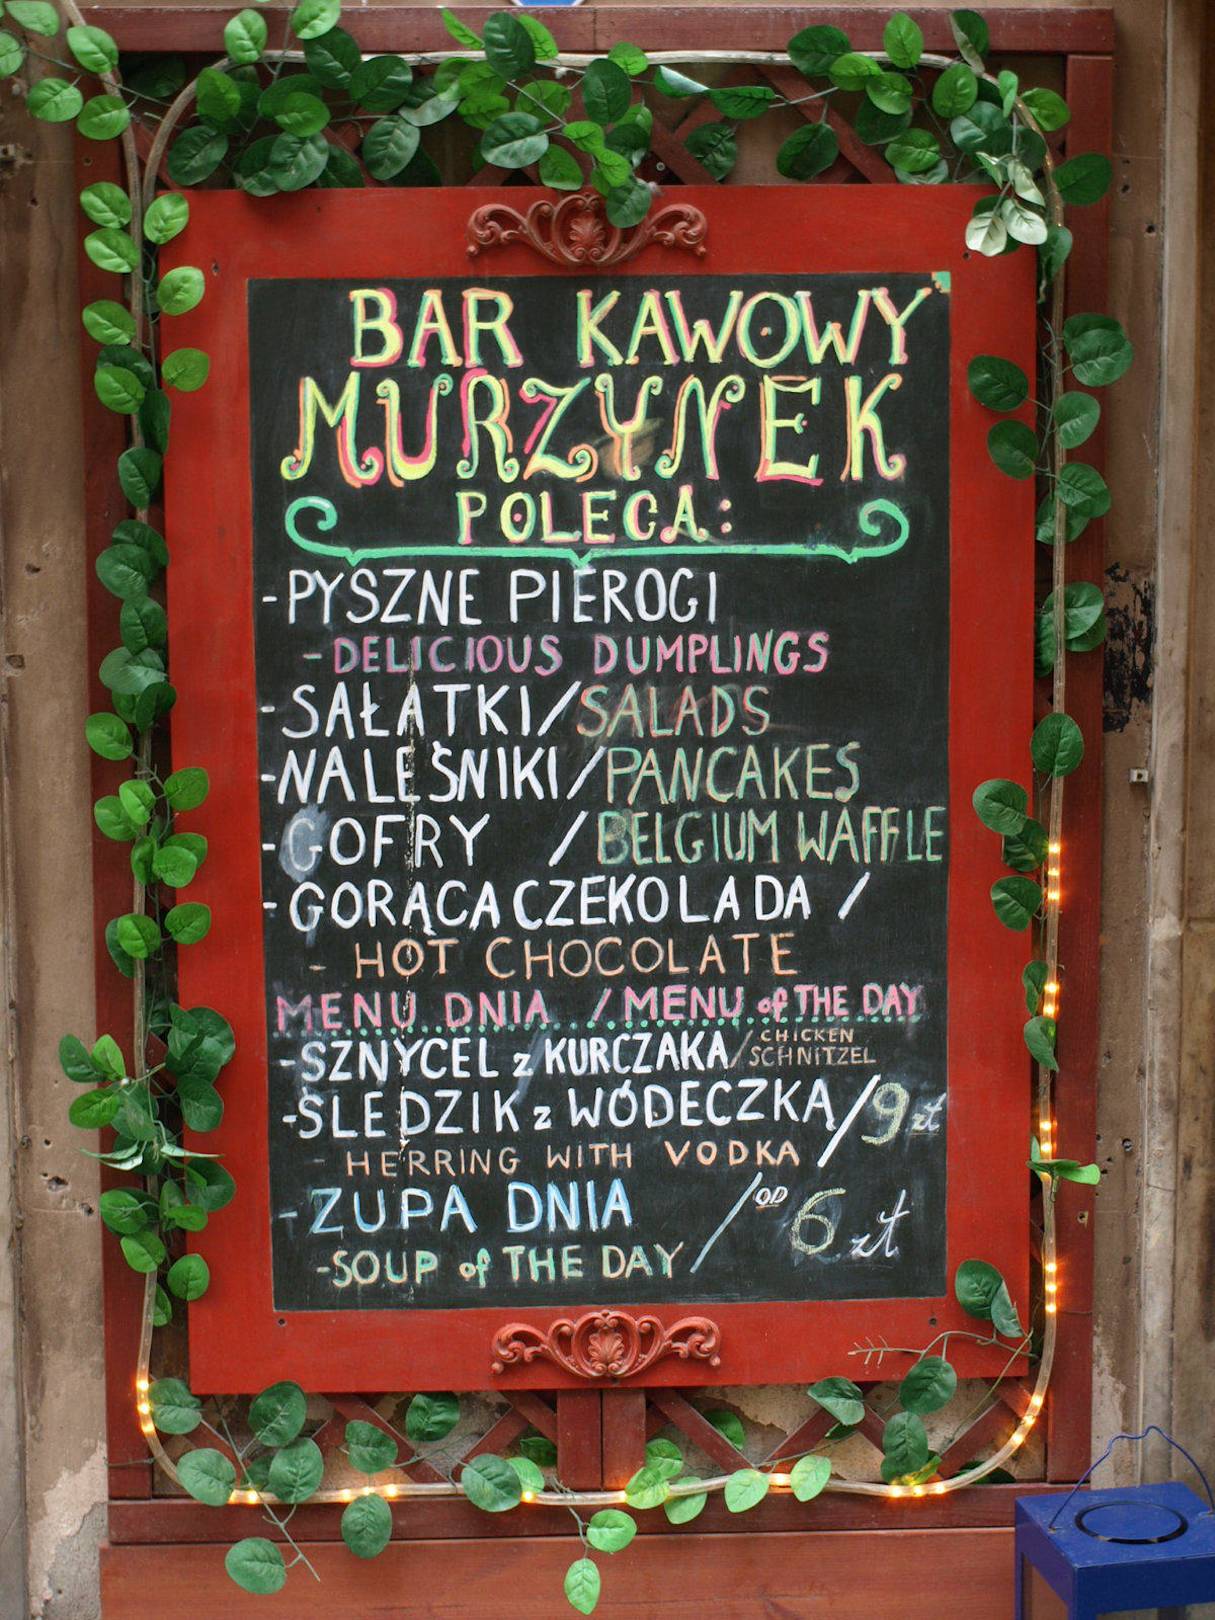 BAR KAWOWY
MURZYNEK
POLECA:
-PYSZNE PIEROGI
-DELICIOUS DUMPLINGS
-SAŁATKI/SALADS
-NALEŚNIKI/PANCAKES
-GOFRY /BELGIUM WAFFLE
-GORĄCA CZEKOLADA /
- HOT CHOCOLATE
MENU DNIA /MENU of THE DAY
-SZNYCEL z KURCZAKA/CHICKEN SCHNITZEL
-ŚLEDZIK z WÓDECZKĄ/9 zł
- HERRING WITH VODKA
-ZUPA DNIA /OD 6 zł
-SOUP of THE DAY